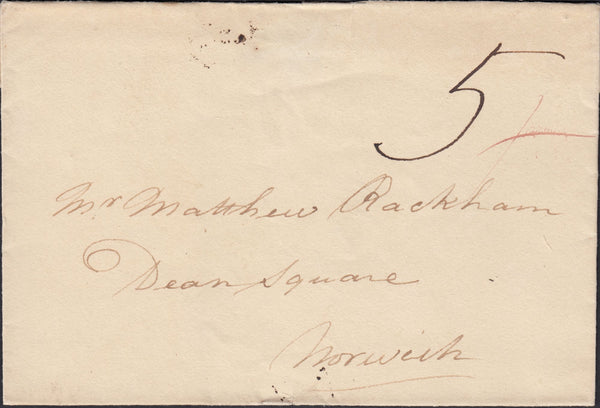 5
Mr Matthew Rackham
Dean Square
Norwich